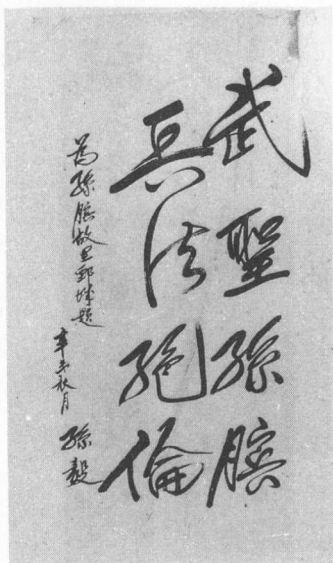 武聖孫臏
兵法絕倫
為孫臏故里鄄城題
辛未秋月 孫毅